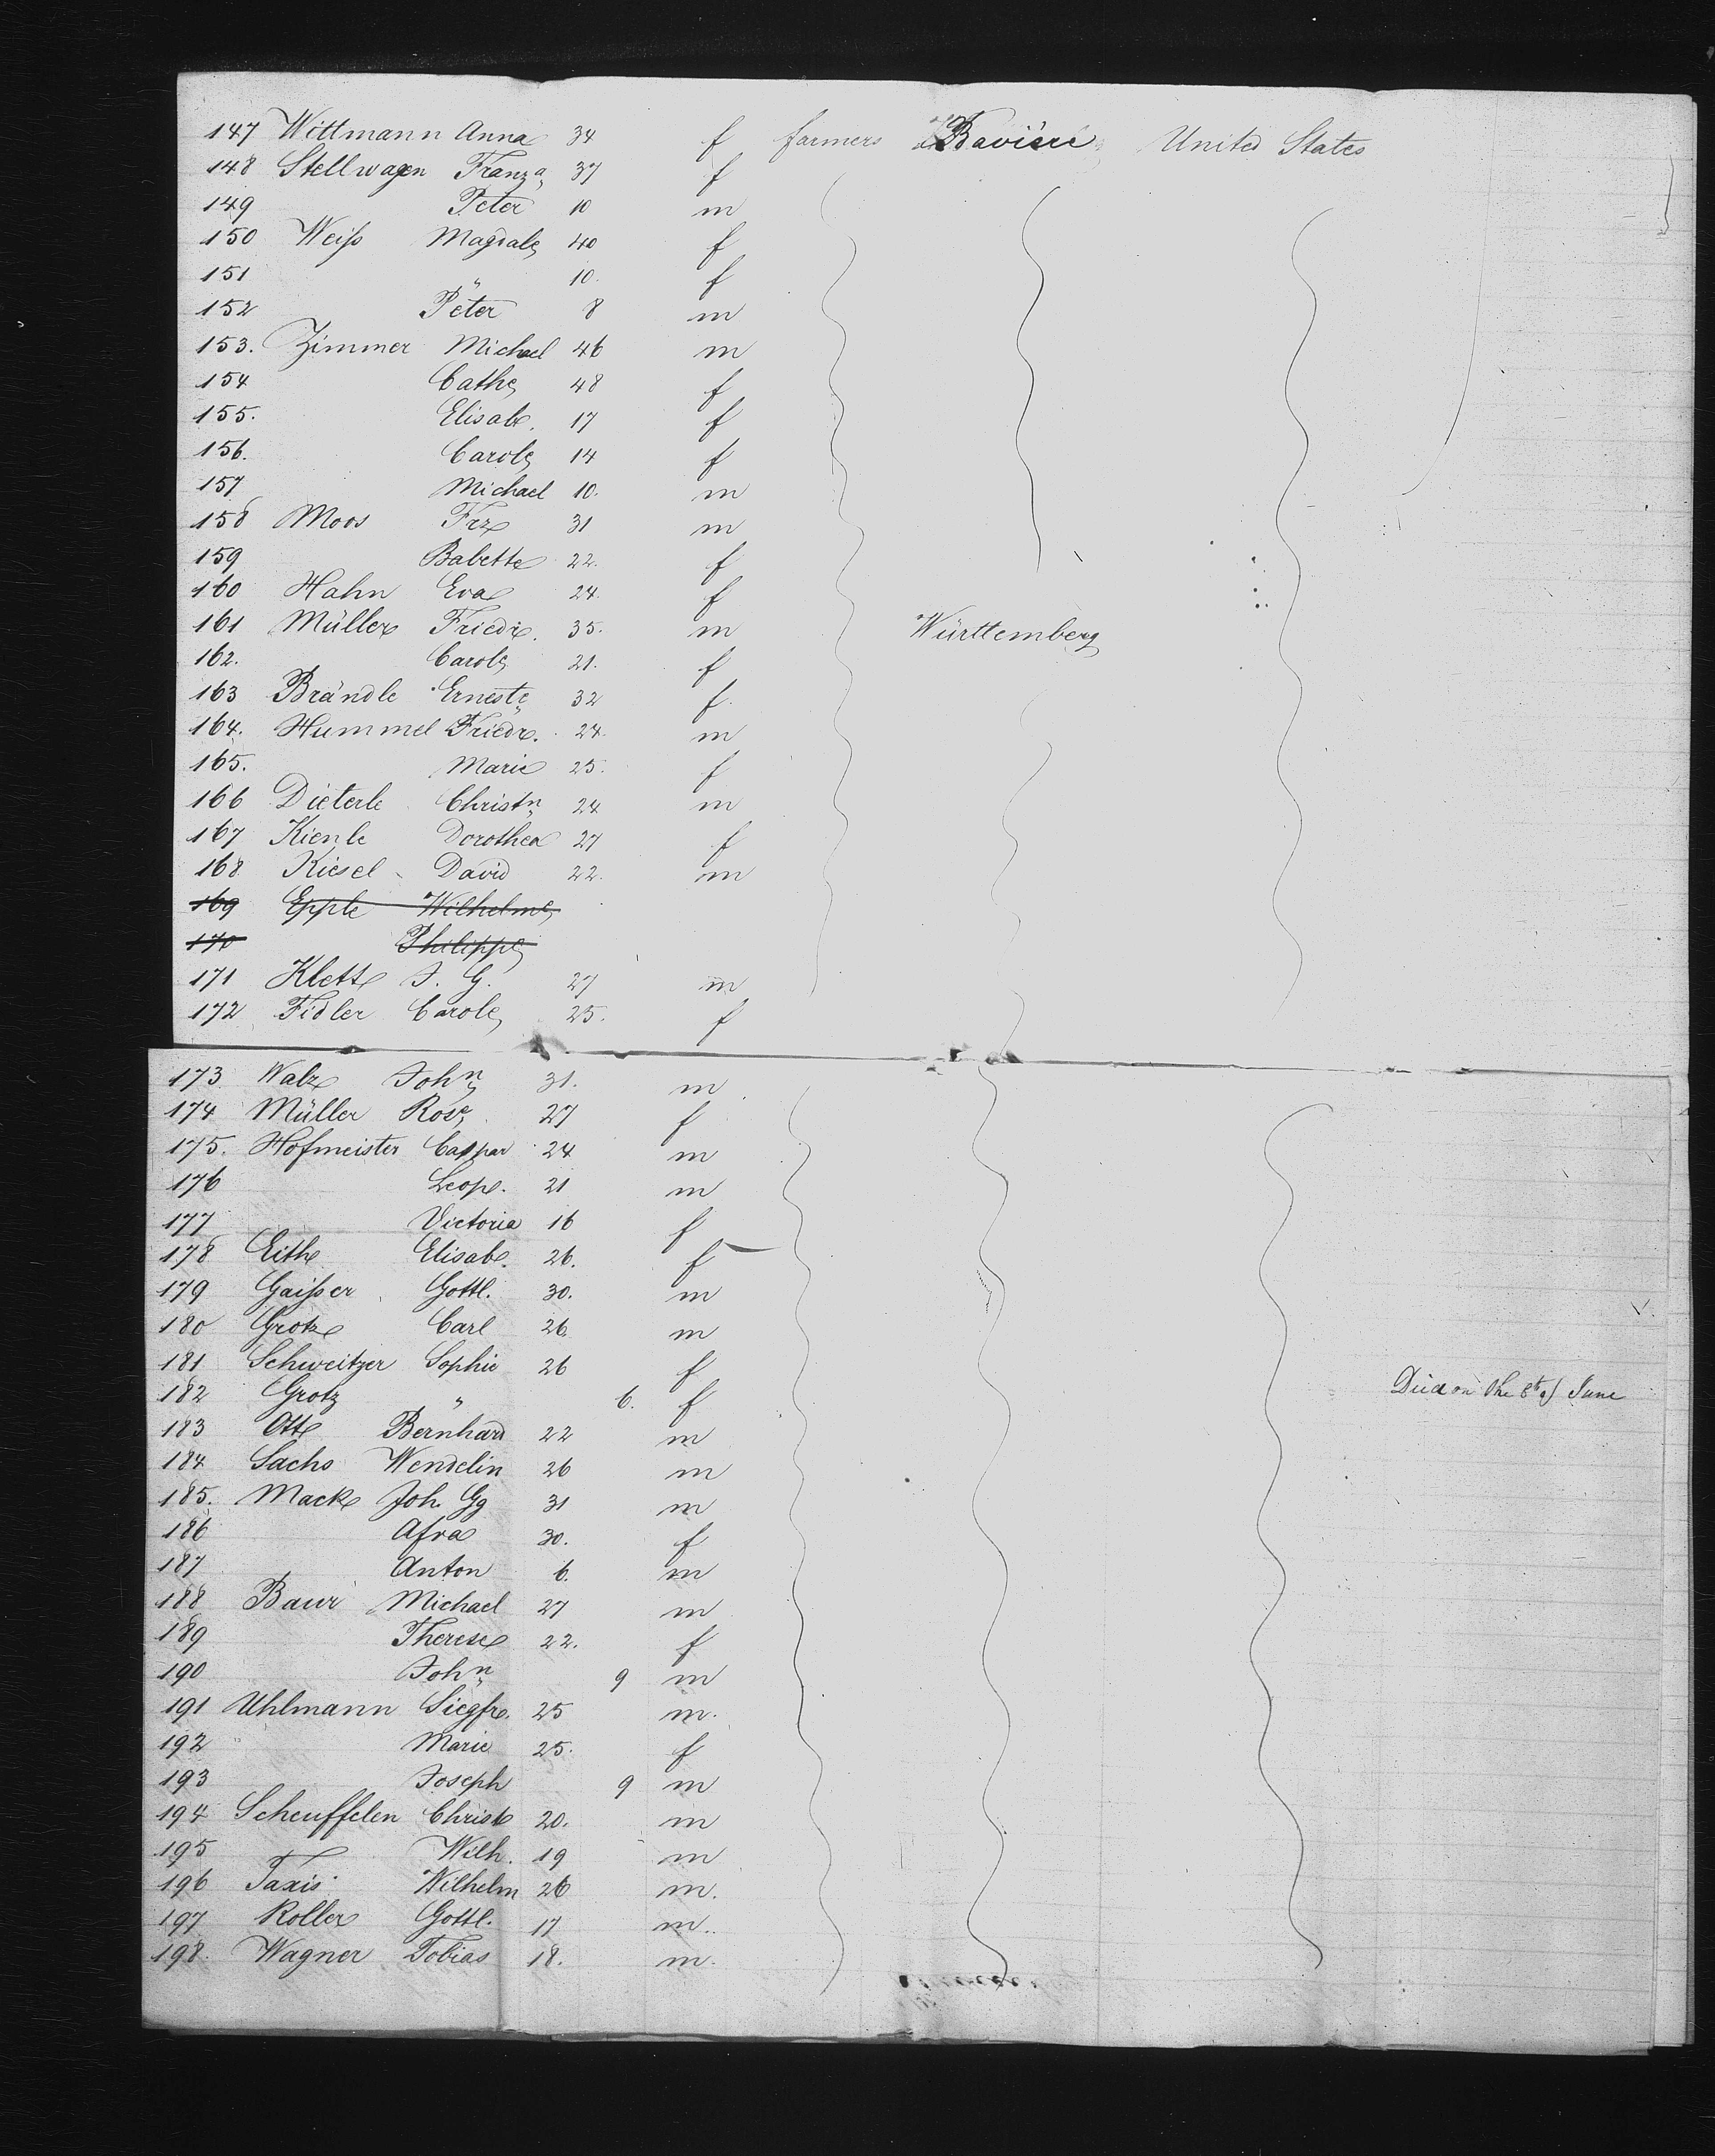 147 Wittmann Anna 34 f farmers Bavière United States
148 Stellwagen Franza 37 f
149 Peter 10 m
150 Weiß Magdale 40 f
151 " 10. f
152 Peter 8 m
153. Zimmer Michael 46 m
154 Cathe 48 f
155. Elisab. 17 f
156. Carole 14 f
157 Michael 10. m
158 Moos Frz 31 m
159 Babette 22. f
160 Hahn Eva 24 f
161 Müller Friedr. 35. m Württemberg
162. Carole 21. f
163 Brändle Ernestе 32 f.
164. Hummel Friedr. 24. m
165. Marie 25. f
166 Dieterle Christn 24 m
167 Kienle Dorothea 27 f
168 Kiesel David 22. m
169 Epple Wilhelme
170 Philippe
171 Klett J. G. 27 m
172 Fidler Carole 25. f
173 Walz John 31. m
174 Müller Rose 27 f
175. Hofmeister Caspar 24 m
176 Leop. 21 m
177 Victoria 16 f
178 Eith Elisab. 26. f
179 Gaißer Gottl. 30. m
180 Grotz Carl 26. m
181 Schweitzer Sophie 26 f
182 Grotz " 6. f Died on the 8th of June
183 Ott Bernhard 22 m
184 Sachs Wendelin 26 m
185. Mack Joh Gg 31 m
186 Afra 30. f
187 Anton 6. m
188 Baur Michael 27 m
189 Therese 22. f
190 John 9 m
191 Uhlmann Siegfr. 25 m.
192 Marie 25. f
193 Joseph 9 m
194 Scheuffelen Christ 20. m
195 Wilh. 19 m
196 Taxis Wilhelm 26 m.
197 Roller Gottl. 17 m..
198. Wagner Tobias 18. m.